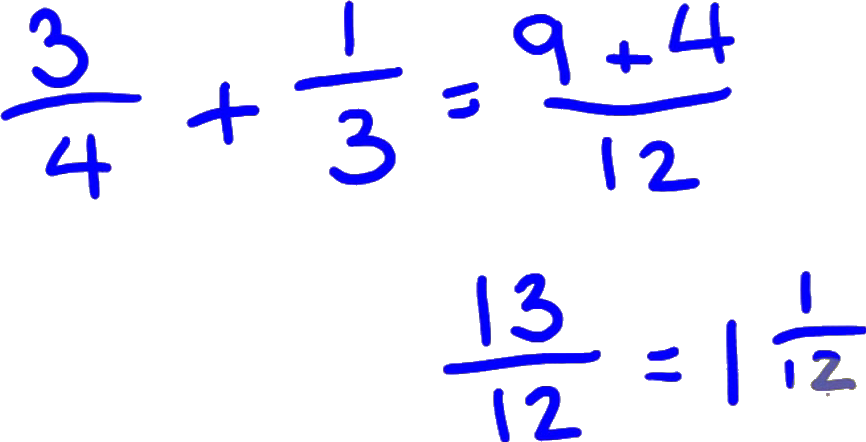 3/4 + 1/3 = 9+4/12
13/12 = 1 1/12